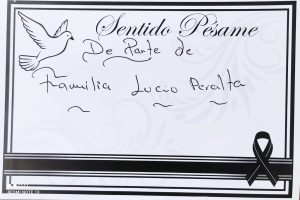 Sentido Pésame
De Parte de
Familia Lucio Peralta